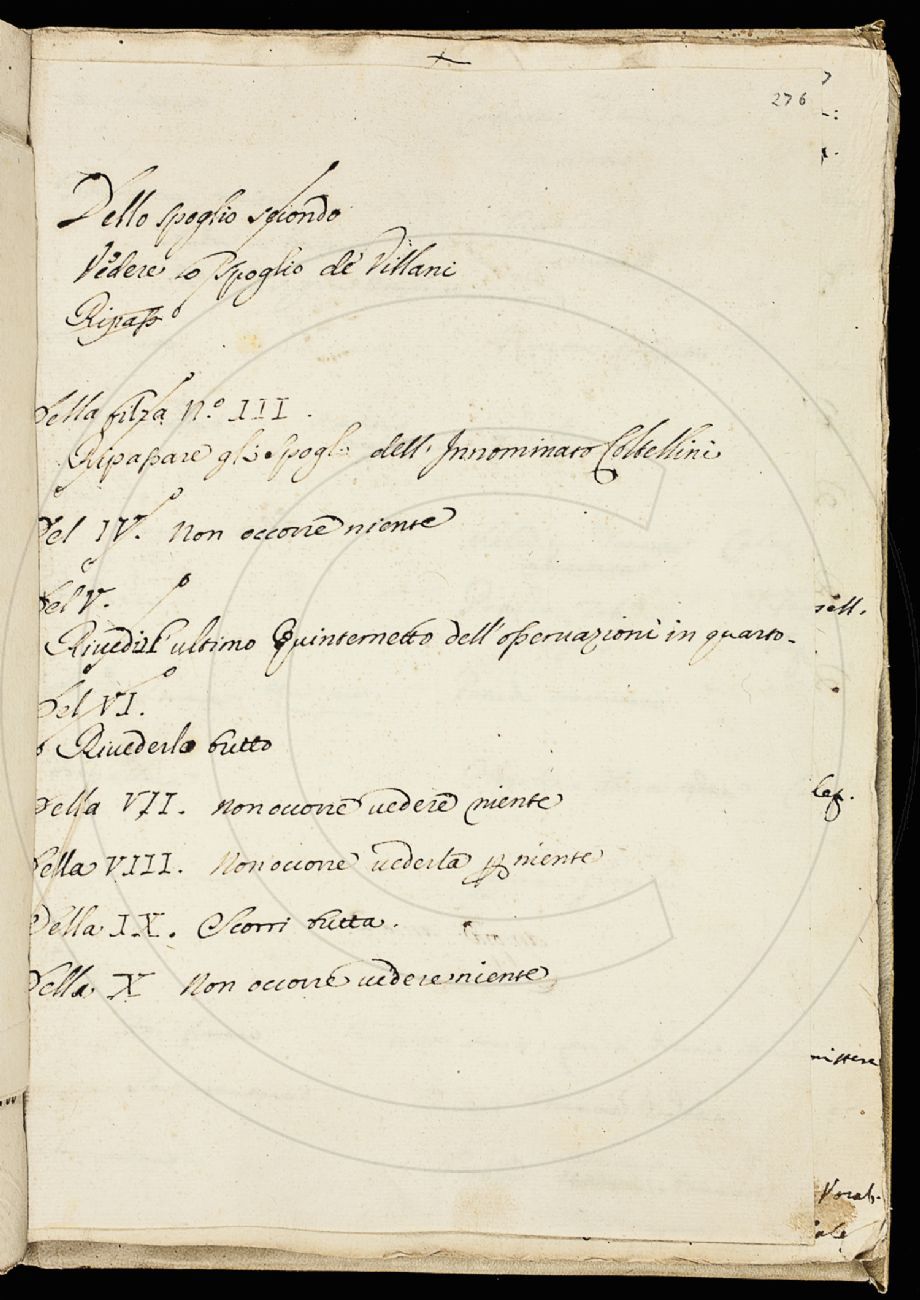 276
Dello spoglio secondo
Vedere lo spoglio de Villani
Ripass
Della filza N.o III.
Ripassare gli spogli dell' Innominato Coltellini
Del IV. Non occorre niente
Del V.
Rivedi l'ultimo Quinternetto dell'osservazioni in quarto.
Del VI.
Rivederlo tutto
Della VII. Non occorre vedere niente
Della VIII. Non occorre vederla niente
Della IX. Scorri tutta.
Della X Non occorre vedere niente
mettere
Vocab.